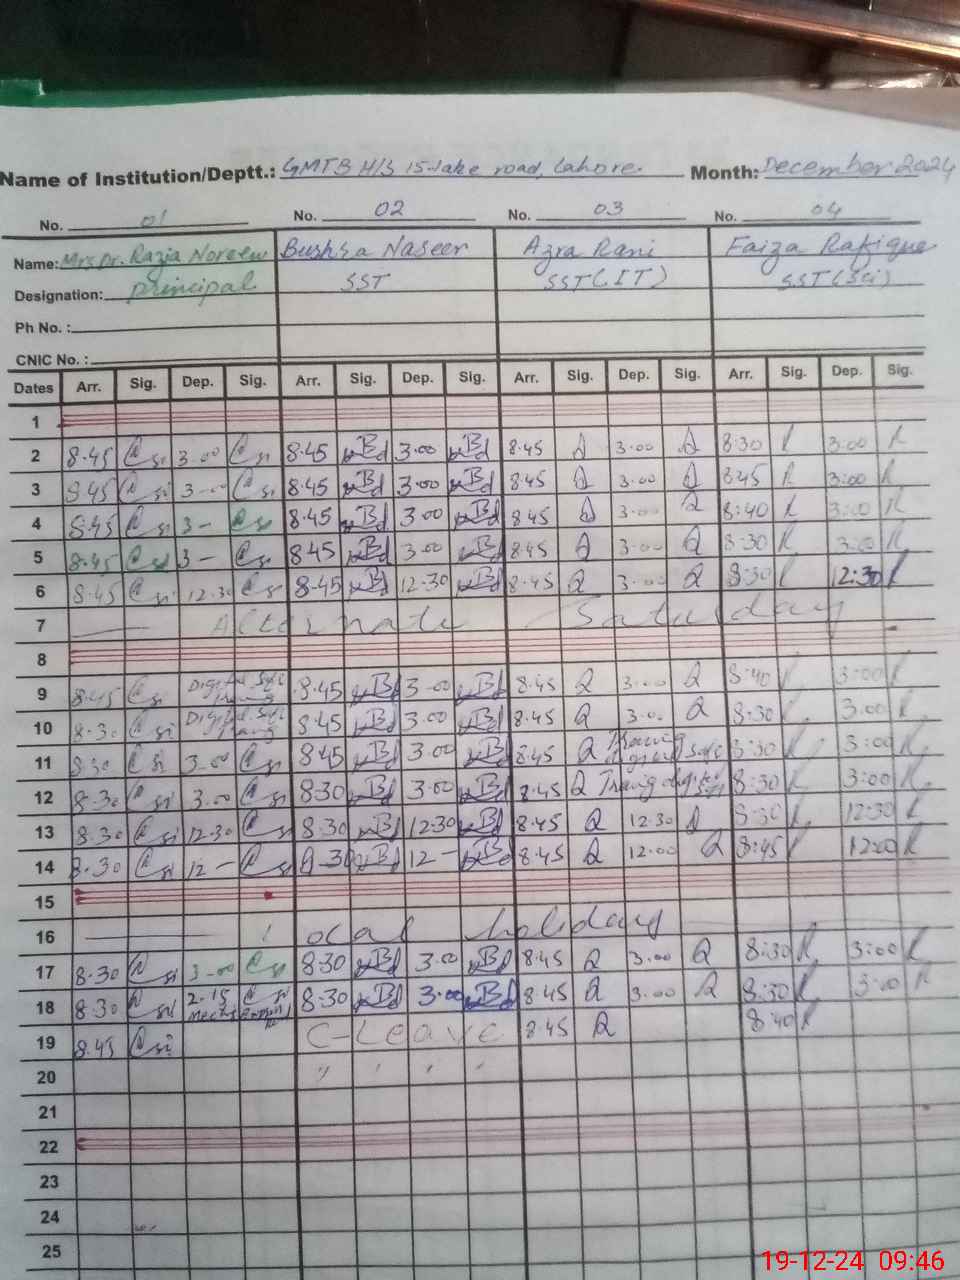 Name of Institution/Deptt.: GMTB H/S 15-lake road, Lahore. Month: December 2024
No. 01 No. 02 No. 03 No. 04
Name: Mrs. Dr. Razia Noreen Bushra Naseer Azra Rani Faiza Rafique
Designation: principal SST SST(IT) SST(Sci)
Ph No. :
CNIC No. :
Dates Arr. Sig. Dep. Sig. Arr. Sig. Dep. Sig. Arr. Sig. Dep. Sig. Arr. Sig. Dep. Sig.
1
2 8.45 3-00 8.45 3.00 8.45 3.00 8:30 3:00
3 8.45 3-00 8.45 3.00 8.45 3.00 8:45 3:00
4 8.45 3- 8.45 3.00 8.45 3.00 8:40 3:00
5 8.45 3- 8.45 3.00 8.45 3.00 8:30 3:00
6 8.45 12.30 8.45 12.30 8.45 3.00 8:30 12:30
7 Alternate Saturday
8
9 8.45 Digital 8.45 3.00 8.45 3.00 8:40 3:00
10 8.30 Digital 8.45 3.00 8.45 3.00 8:30 3:00
11 8.30 3.00 8.45 3.00 8.45 8:30 3:00
12 8.30 3.00 8.30 3.00 8.45 8:30 3:00
13 8.30 12.30 8.30 12.30 8.45 12.30 8:30 12:30
14 8.30 12- 8.30 12- 8.45 12.00 8:45 12:00
15
16 Local holiday
17 8.30 3-00 8.30 3.00 8.45 3.00 8:30 3:00
18 8.30 2.15 8.30 3.00 8.45 3.00 8:30 3:00
19 8.45 C-Leave 8.45 8:40
20 " " " "
21
22
23
24
25
19-12-24 09:46